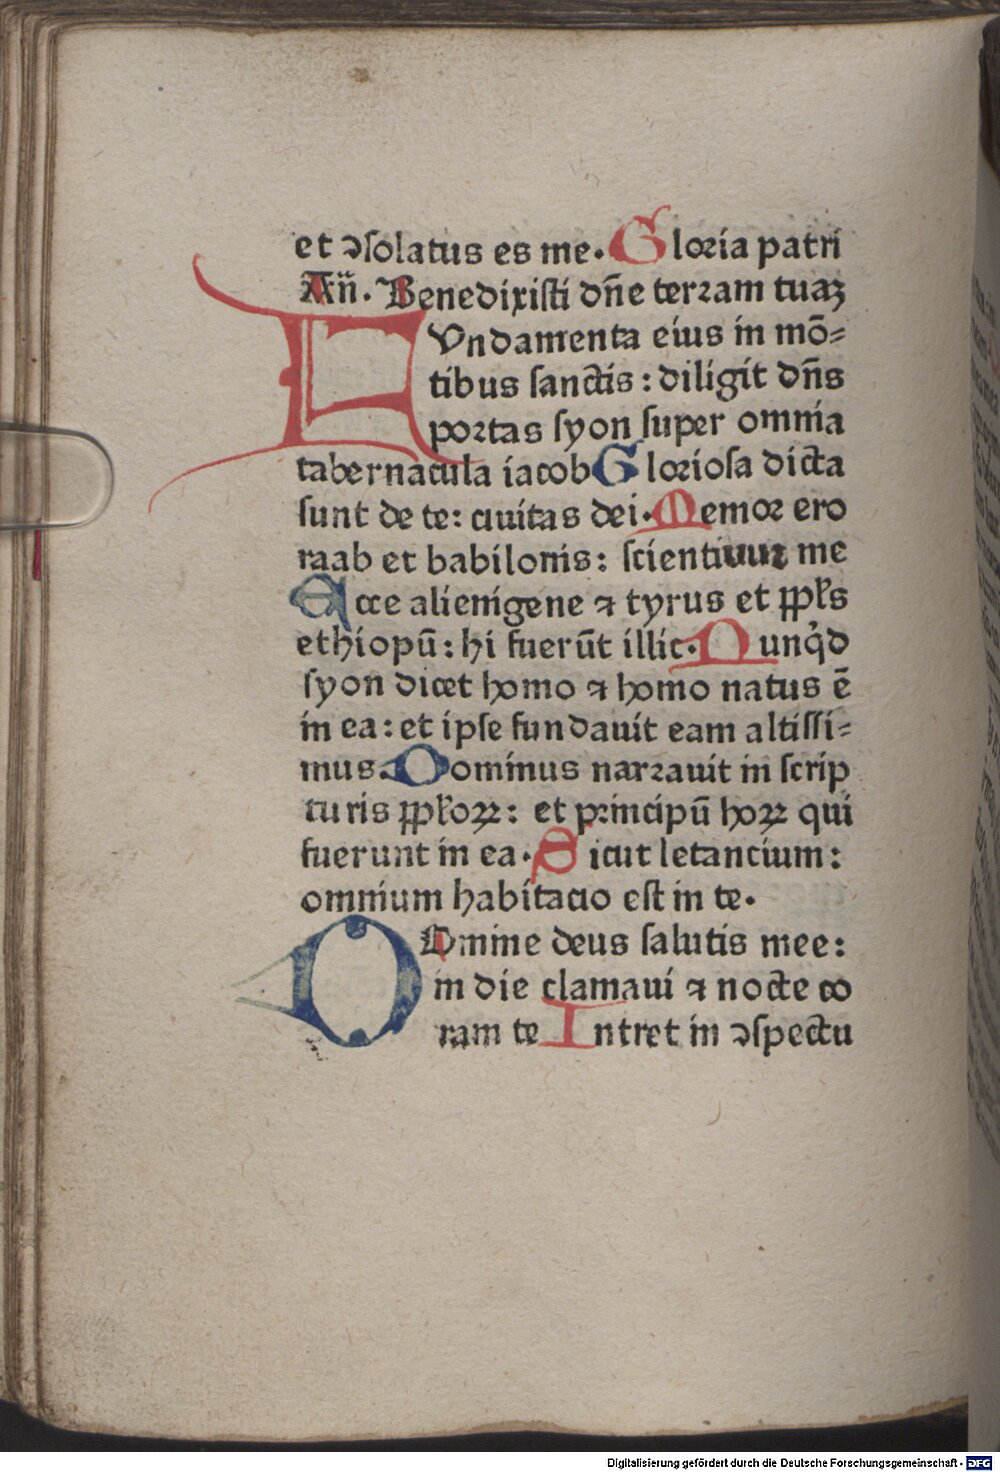 et ↄſolatus es me. Gloꝛia patri
An̄. Benedixiſti dn̄e terꝛam tuaꝫ
FVndamenta eius in mō⸗
tibus ſanctis: diligit dn̄s
poꝛtas ſyon ſuper omnia
tabernacula iacob Gloꝛioſa dicta
ſunt de te: ciuitas dei. Memoꝛ ero
raab et babilonis: ſcientium me
Ecce alienigene ⁊ tyrus et ppl̄s
ethiopū: hi fuerūt illic. Nunqͥd
ſyon dicet homo ⁊ homo natus ē
in ea: et ipſe fundauit eam altiſſi⸗
mus. Dominus narꝛauit in ſcrip
turis ppl̄oꝝ: et pꝛincipū hoꝝ qui
fuerunt in ea. Sicut letancium:
omnium habitacio eſt in te.
DOmine deus ſalutis mee:
in die clamaui ⁊ nocte co
ram te Intret in ↄſpectu
Digitalisierung gefördert durch die Deutsche Forschungsgemeinschaft - DFG